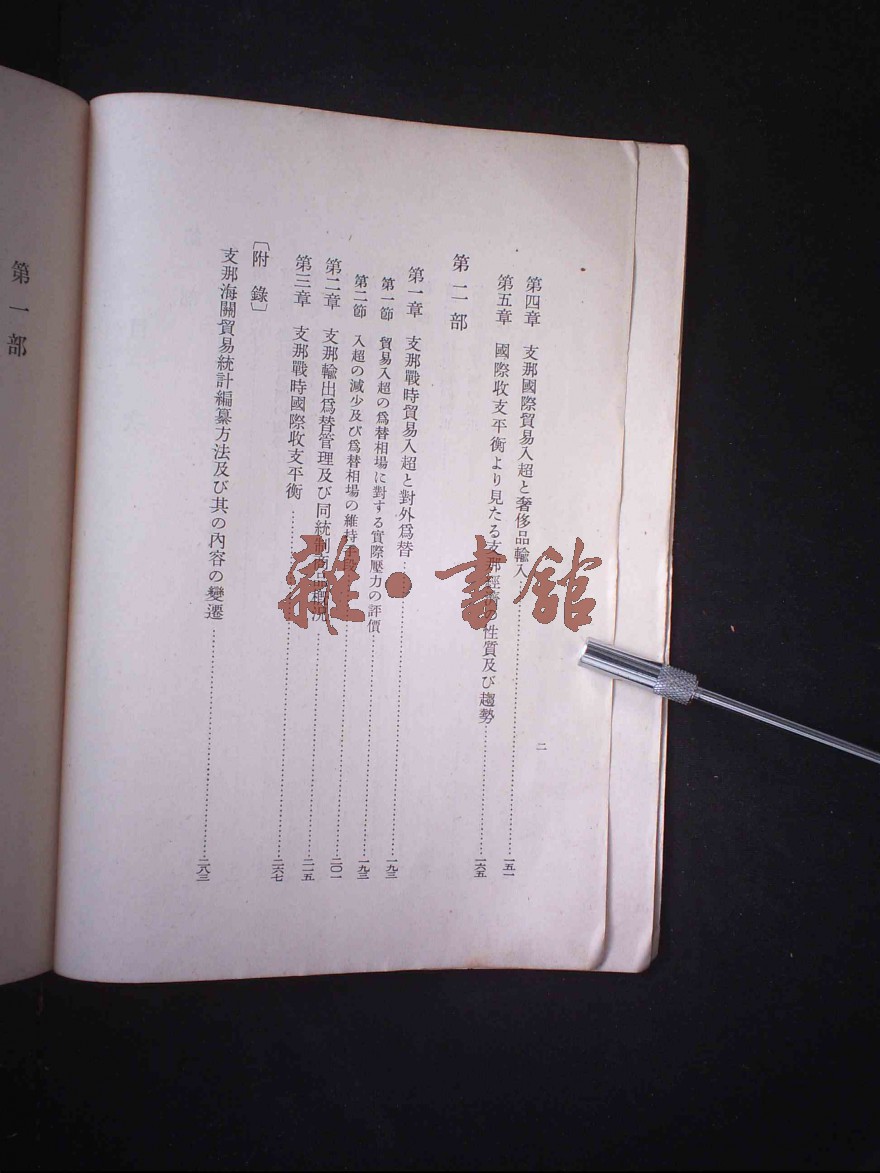 二
第四章 支那國際貿易入超と奢侈品輸入……一五一
第五章 國際收支平衡より見たる支那經濟の性質及び趨勢……一六五
第二部
第一章 支那戰時貿易入超と對外爲替……一九三
第一節 貿易入超の爲替相場に對する實際壓力の評價……一九三
第二節 入超の減少及び爲替相場の維持手段……二〇一
第二章 支那輸出爲替管理及び同統制商品概況……二一五
第三章 支那戰時國際收支平衡……二六七
〔附錄〕
支那海關貿易統計編纂方法及び其の內容の變遷……二八三
第一部
雜·書舘